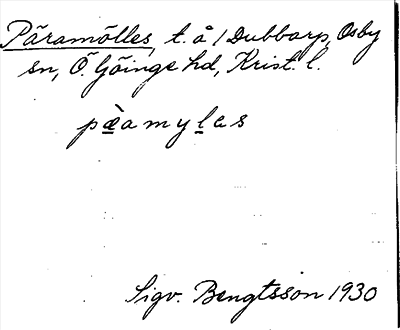 Päramölles, t. å / Dubbarp, Osby
sn, Ö. Göinge hd, Krist. l.
pæ̀amylas
Sigv. Bengtsson 1930